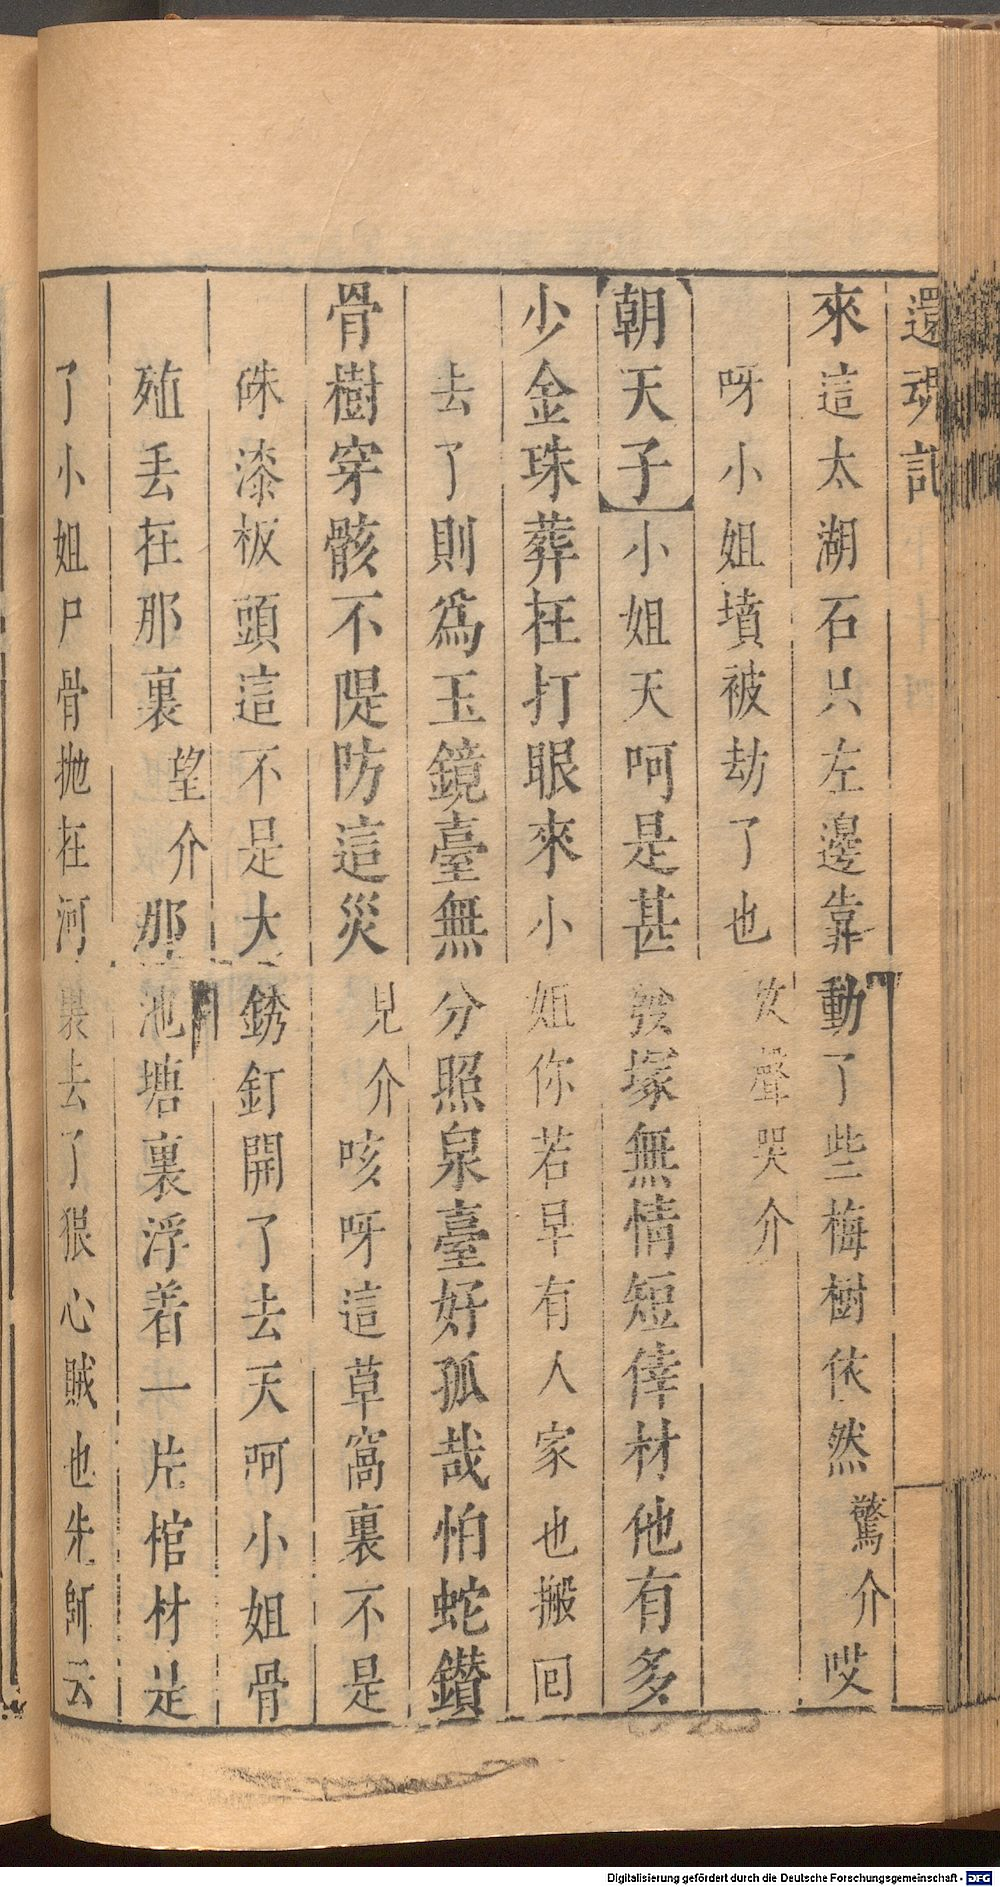 還魂記
來這太湖石只左邊靠動了些梅樹依然驚介哎
呀小姐墳被劫了也放聲哭介
【朝天子】小姐天天呵是甚發塚無情短倖材他有多
少金珠葬在打眼來小姐你若早有人家也搬回
去了則爲玉鏡臺無分照泉臺好孤哉怕蛇鑽
骨樹穿骸不隄防這災見介咳呀這草窩裏不是
硃漆板頭這不是大銹釘開了去天呵小姐骨
殖丟在那裏望介那池塘裏浮着一片棺材是
了小姐尸骨拋在河裏去了狠心賊也朱師云
Digitalisierung gefördert durch die Deutsche Forschungsgemeinschaft - DFG